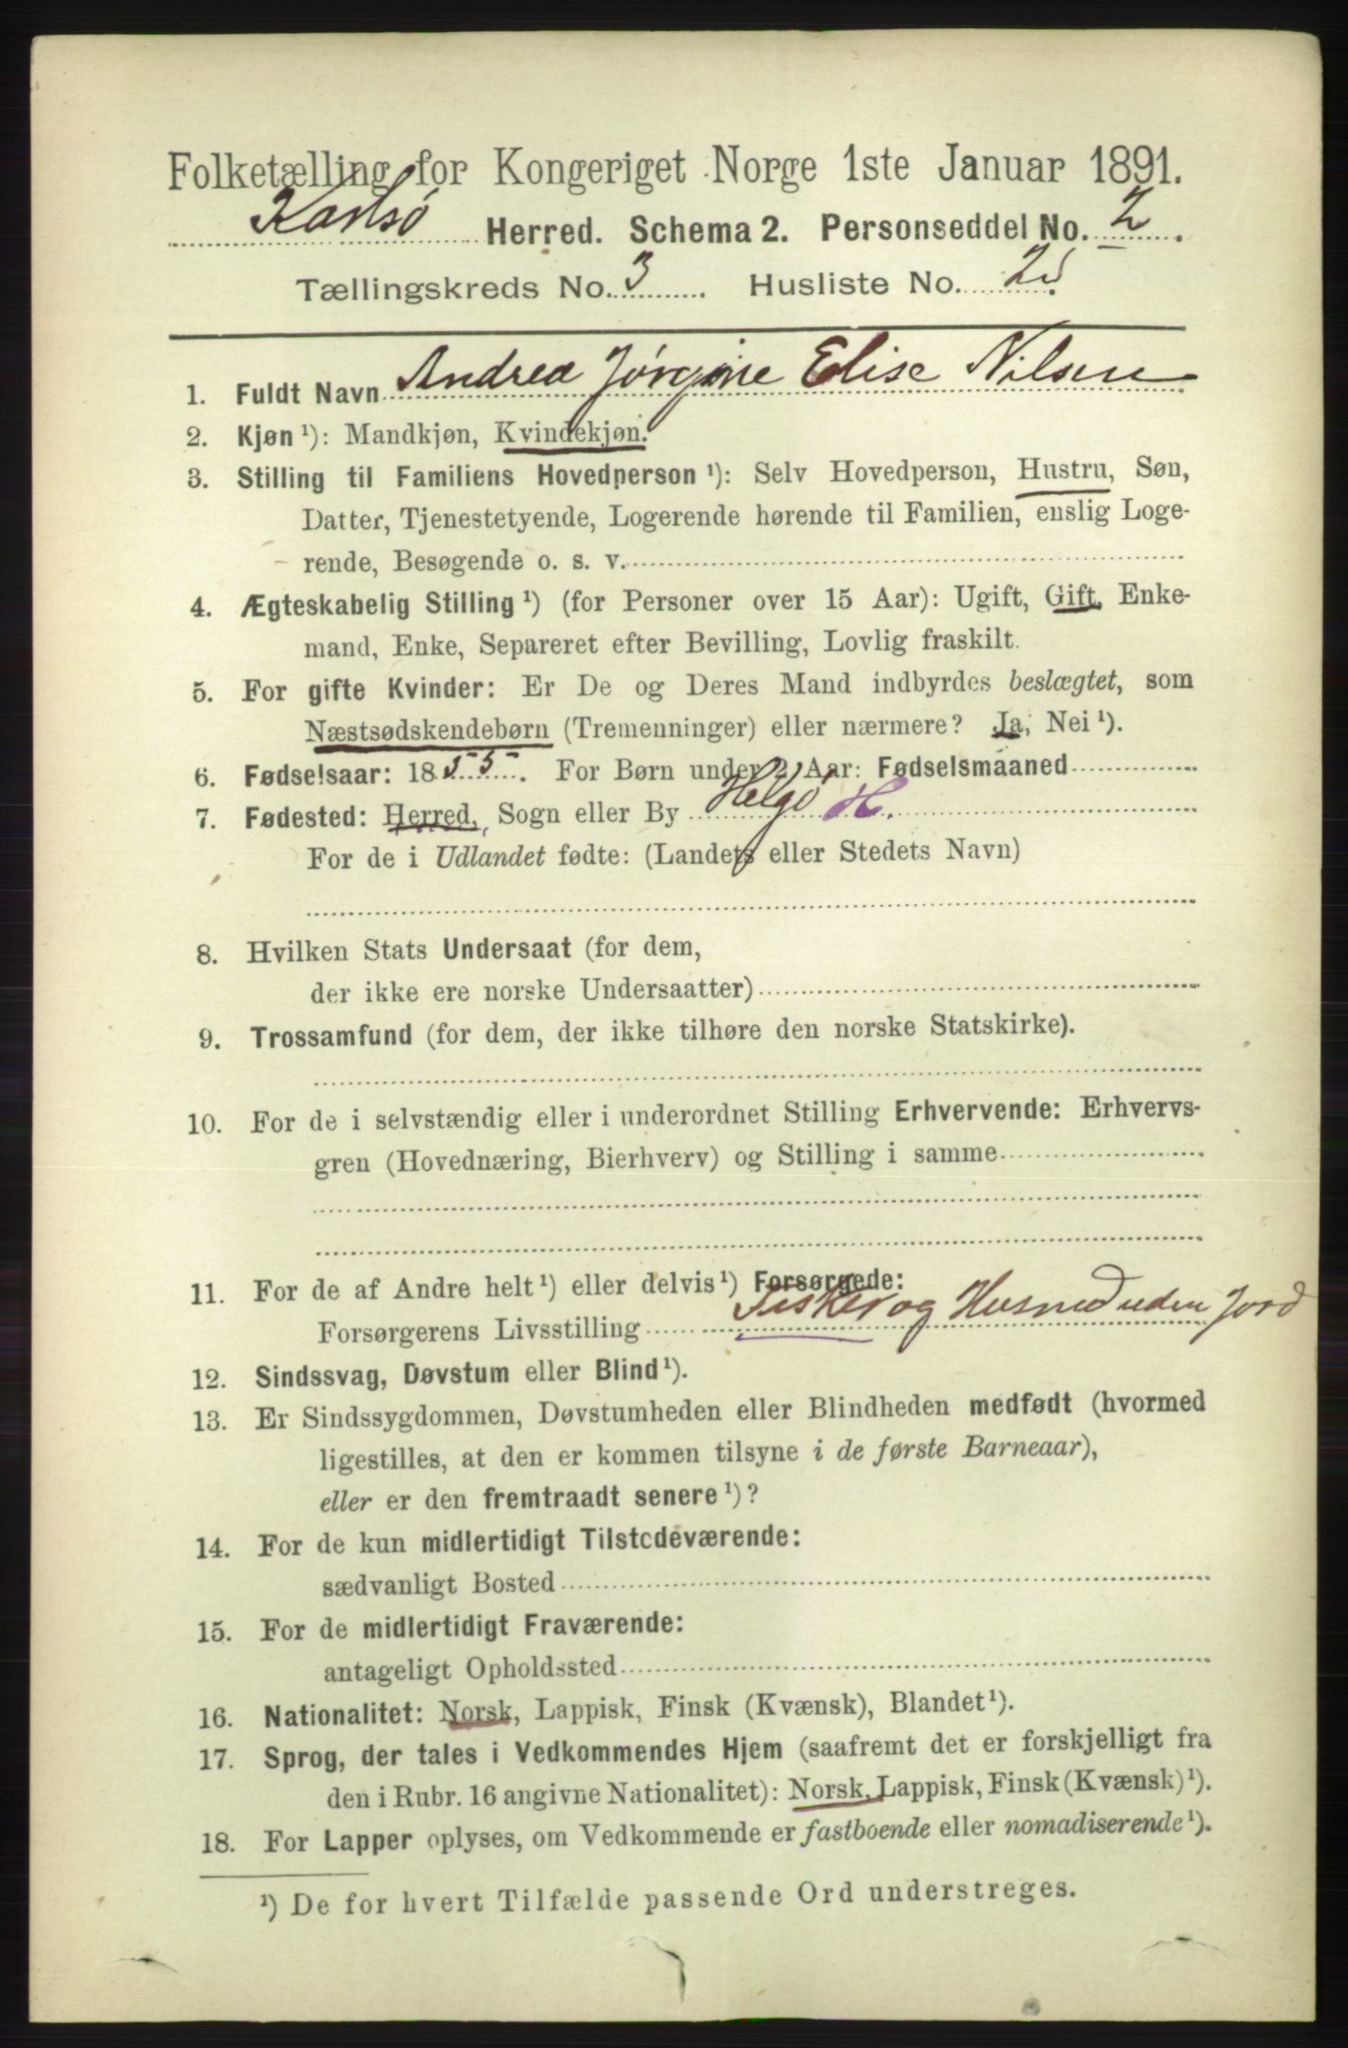 Folketælling for Kongeriget Norge 1ste Januar 1891.
Karlsø Herred. Schema 2. Personseddel No. 2.
Tællingskreds No. 3. Husliste No.
1. Fuldt Navn Andrea Jørgine Elise Nilsen
2. Kjøn ¹): Mandkjøn, Kvindekjøn.
3. Stilling til Familiens Hovedperson ¹): Selv Hovedperson, Hustru, Søn,
Datter, Tjenestetyende, Logerende hørende til Familien, enslig Loge-
rende, Besøgende o. s. v.
4. Ægteskabelig Stilling ¹) (for Personer over 15 Aar): Ugift, Gift, Enke-
mand, Enke, Separeret efter Bevilling, Lovlig fraskilt.
5. For gifte Kvinder: Er De og Deres Mand indbyrdes beslægtet, som
Næstsødskendebørn (Tremenninger) eller nærmere? Ja, Nei ¹).
6. Fødselsaar: 1855. For Børn under 2 Aar: Fødselsmaaned
7. Fødested: Herred, Sogn eller By Helgø H.
For de i Udlandet fødte: (Landets eller Stedets Navn)
8. Hvilken Stats Undersaat (for dem,
der ikke ere norske Undersaatter)
9. Trossamfund (for dem, der ikke tilhøre den norske Statskirke).
10. For de i selvstændig eller i underordnet Stilling Erhvervende: Erhvervs-
gren (Hovednæring, Bierhverv) og Stilling i samme
11. For de af Andre helt ¹) eller delvis ¹) Forsørgede:
Forsørgerens Livsstilling Fisker og Husmed uden Jord
12. Sindssvag, Døvstum eller Blind ¹).
13. Er Sindssygdommen, Døvstumheden eller Blindheden medfødt (hvormed
ligestilles, at den er kommen tilsyne i de første Barneaar),
eller er den fremtraadt senere ¹)?
14. For de kun midlertidigt Tilstedeværende:
sædvanligt Bosted
15. For de midlertidigt Fraværende:
antageligt Opholdssted
16. Nationalitet: Norsk, Lappisk, Finsk (Kvænsk), Blandet ¹).
17. Sprog, der tales i Vedkommendes Hjem (saafremt det er forskjelligt fra
den i Rubr. 16 angivne Nationalitet): Norsk, Lappisk, Finsk (Kvænsk) ¹).
18. For Lapper oplyses, om Vedkommende er fastboende eller nomadiserende ¹).
¹) De for hvert Tilfælde passende Ord understreges.